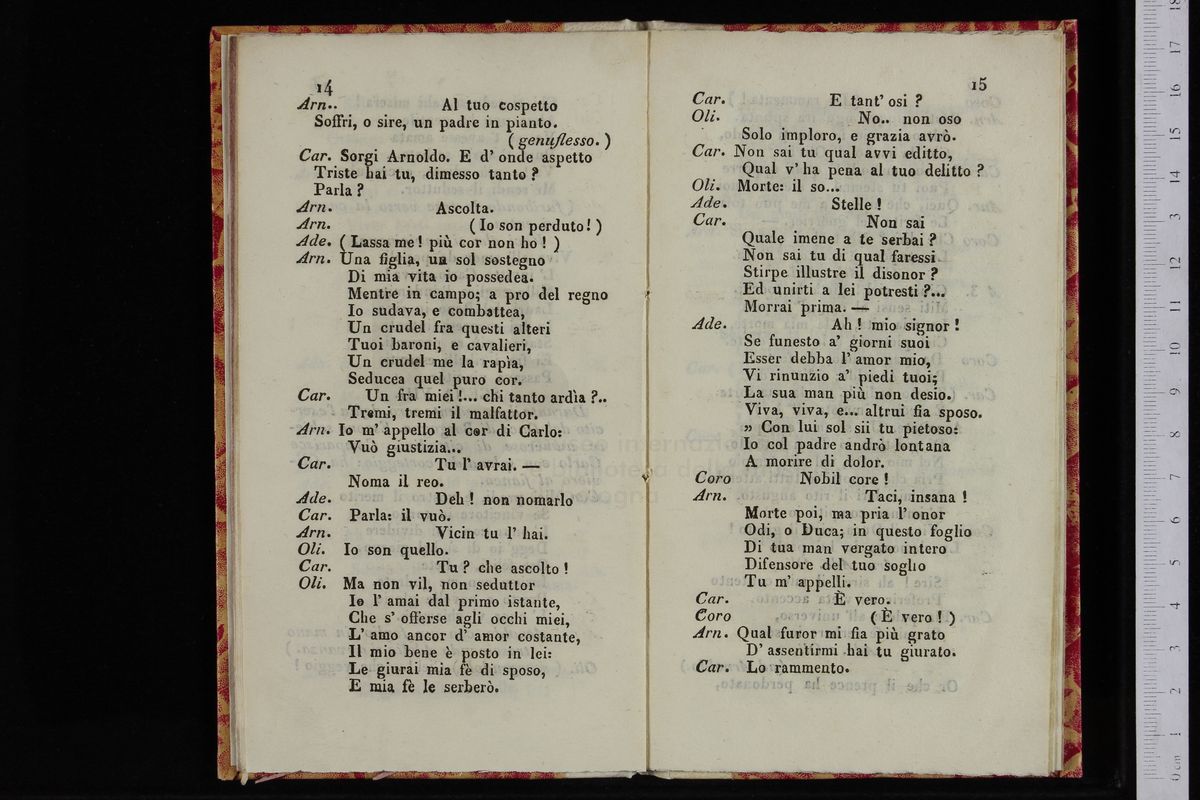 14
Arn.. Al tuo cospetto
Soffri, o sire, un padre in pianto.
( genuflesso. )
Car. Sorgi Arnoldo. E d' onde aspetto
Triste hai tu, dimesso tanto ?
Parla ?
Arn. Ascolta.
Arn. ( Io son perduto! )
Ade. ( Lassa me! più cor non ho ! )
Arn. Una figlia, un sol sostegno
Di mia vita io possedea.
Mentre in campo; a pro del regno
Io sudava, e combattea,
Un crudel fra questi alteri
Tuoi baroni, e cavalieri,
Un crudel me la rapìa,
Seducea quel puro cor.
Car. Un fra miei !... chi tanto ardìa ?..
Tremi, tremi il malfattor.
Arn. Io m' appello al cor di Carlo:
Vuò giustizia...
Car. Tu l' avrai. —
Noma il reo.
Ade. Deh ! non nomarlo
Car. Parla: il vuò.
Arn. Vicin tu l' hai.
Oli. Io son quello.
Car. Tu ? che ascolto !
Oli. Ma non vil, non seduttor
Io l' amai dal primo istante,
Che s' offerse agli occhi miei,
L' amo ancor d' amor costante,
Il mio bene è posto in lei:
Le giurai mia fè di sposo,
E mia fè le serberò.
15
Car. E tant' osi ?
Oli. No.. non oso
Solo imploro, e grazia avrò.
Car. Non sai tu qual avvi editto,
Qual v' ha pena al tuo delitto ?
Oli. Morte: il so...
Ade. Stelle !
Car. Non sai
Quale imene a te serbai ?
Non sai tu di qual faressi
Stirpe illustre il disonor ?
Ed unirti a lei potresti ?...
Morrai prima. —
Ade. Ah ! mio signor !
Se funesto a' giorni suoi
Esser debba l' amor mio,
Vi rinunzio a' piedi tuoi;
La sua man più non desio.
Viva, viva, e... altrui fia sposo.
» Con lui sol sii tu pietoso:
Io col padre andrò lontana
A morire di dolor.
Coro Nobil core !
Arn. Taci, insana !
Morte poi, ma pria l' onor
Odi, o Duca; in questo foglio
Di tua man vergato intero
Difensore del tuo soglio
Tu m' appelli.
Car. È vero.
Coro ( È vero ! )
Arn. Qual furor mi fia più grato
D' assentirmi hai tu giurato.
Car. Lo rammento.